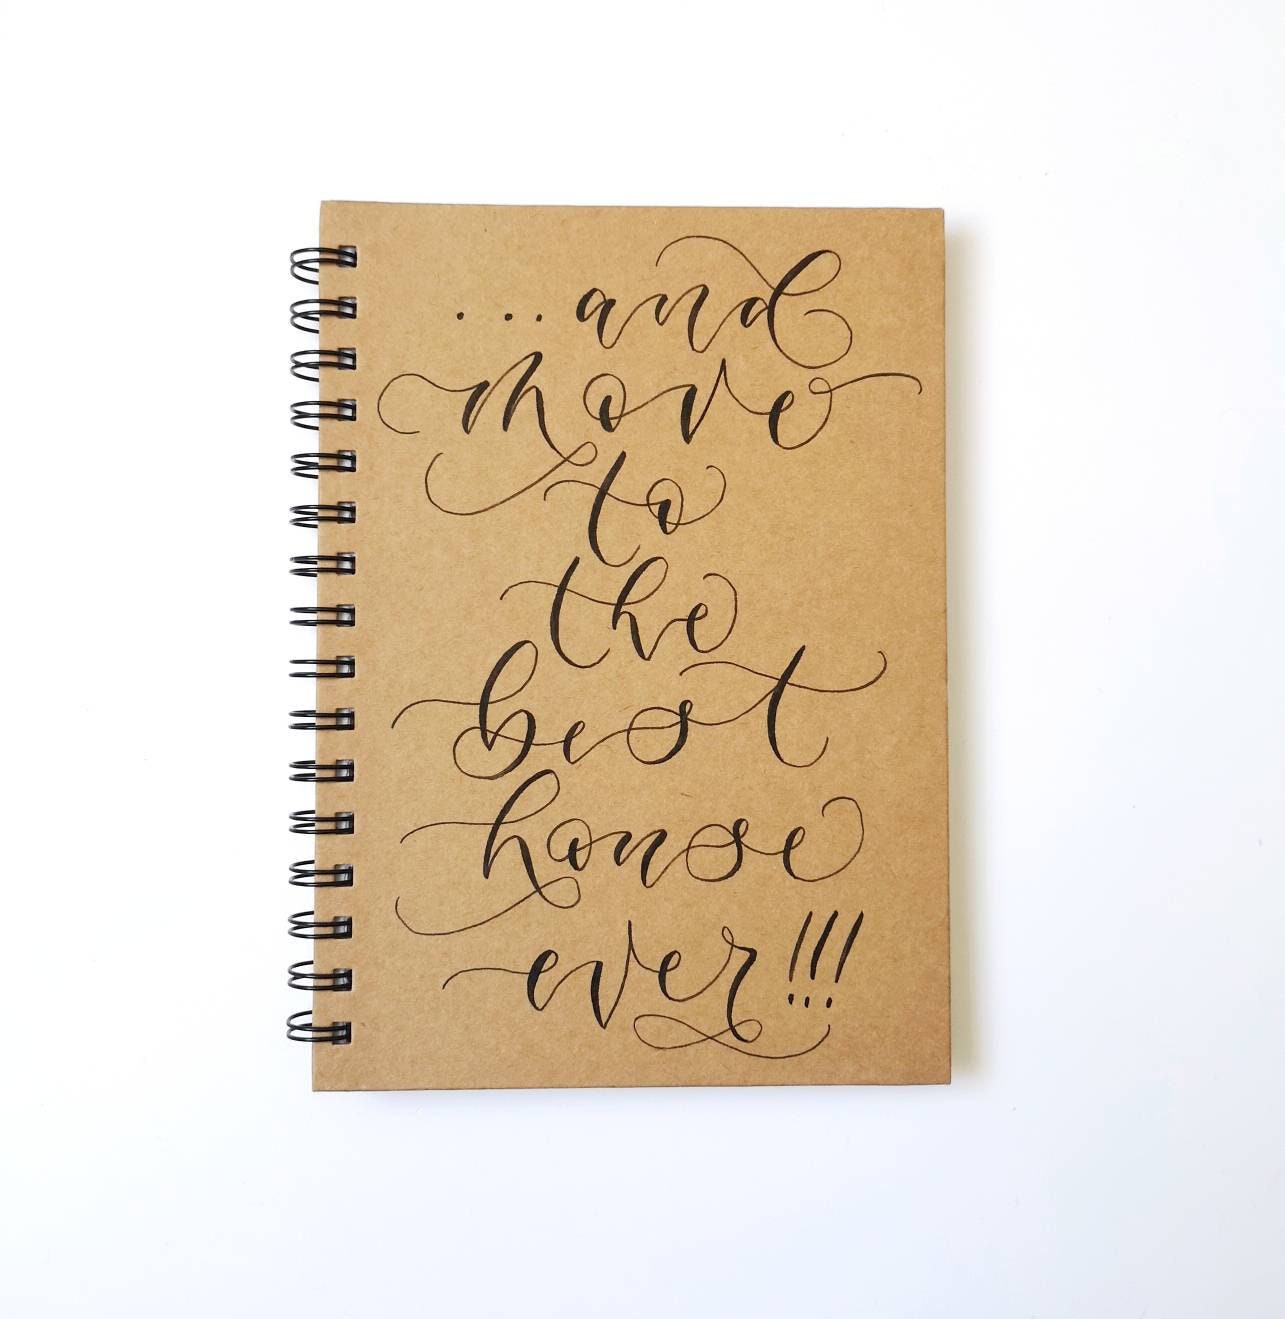 ...and
move
to
the
best
house
ever!!!